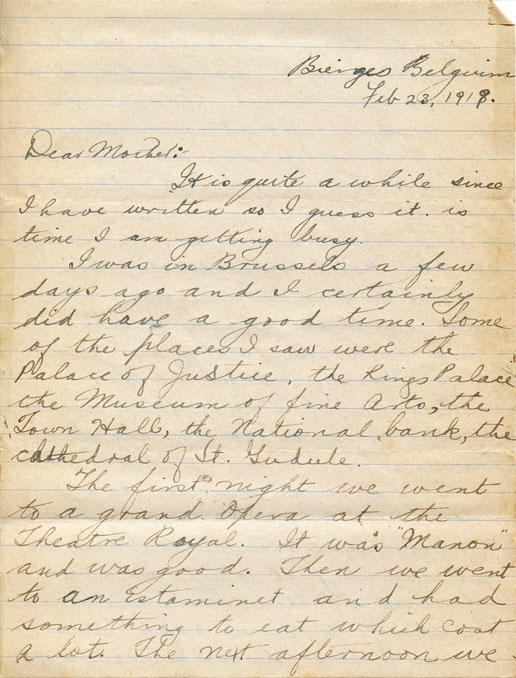 Bierges Belgium
Feb 23, 1919.
Dear Mother:
It is quite a while since
I have written so I guess it is
time I am getting busy.
I was in Brussels a few
days ago and I certainly
did have a good time. Some
of the places I saw were the
Palace of Justice, the Kings Palace
the Museum of fine Arts, the
Town Hall, the National bank, the
cathedral of St. Gudule.
The first night we went
to a grand Opera at the
Theatre Royal. It was "Manon"
and was good. Then we went
to an Estaminet and had
something to eat which cost
a lot. The next afternoon we